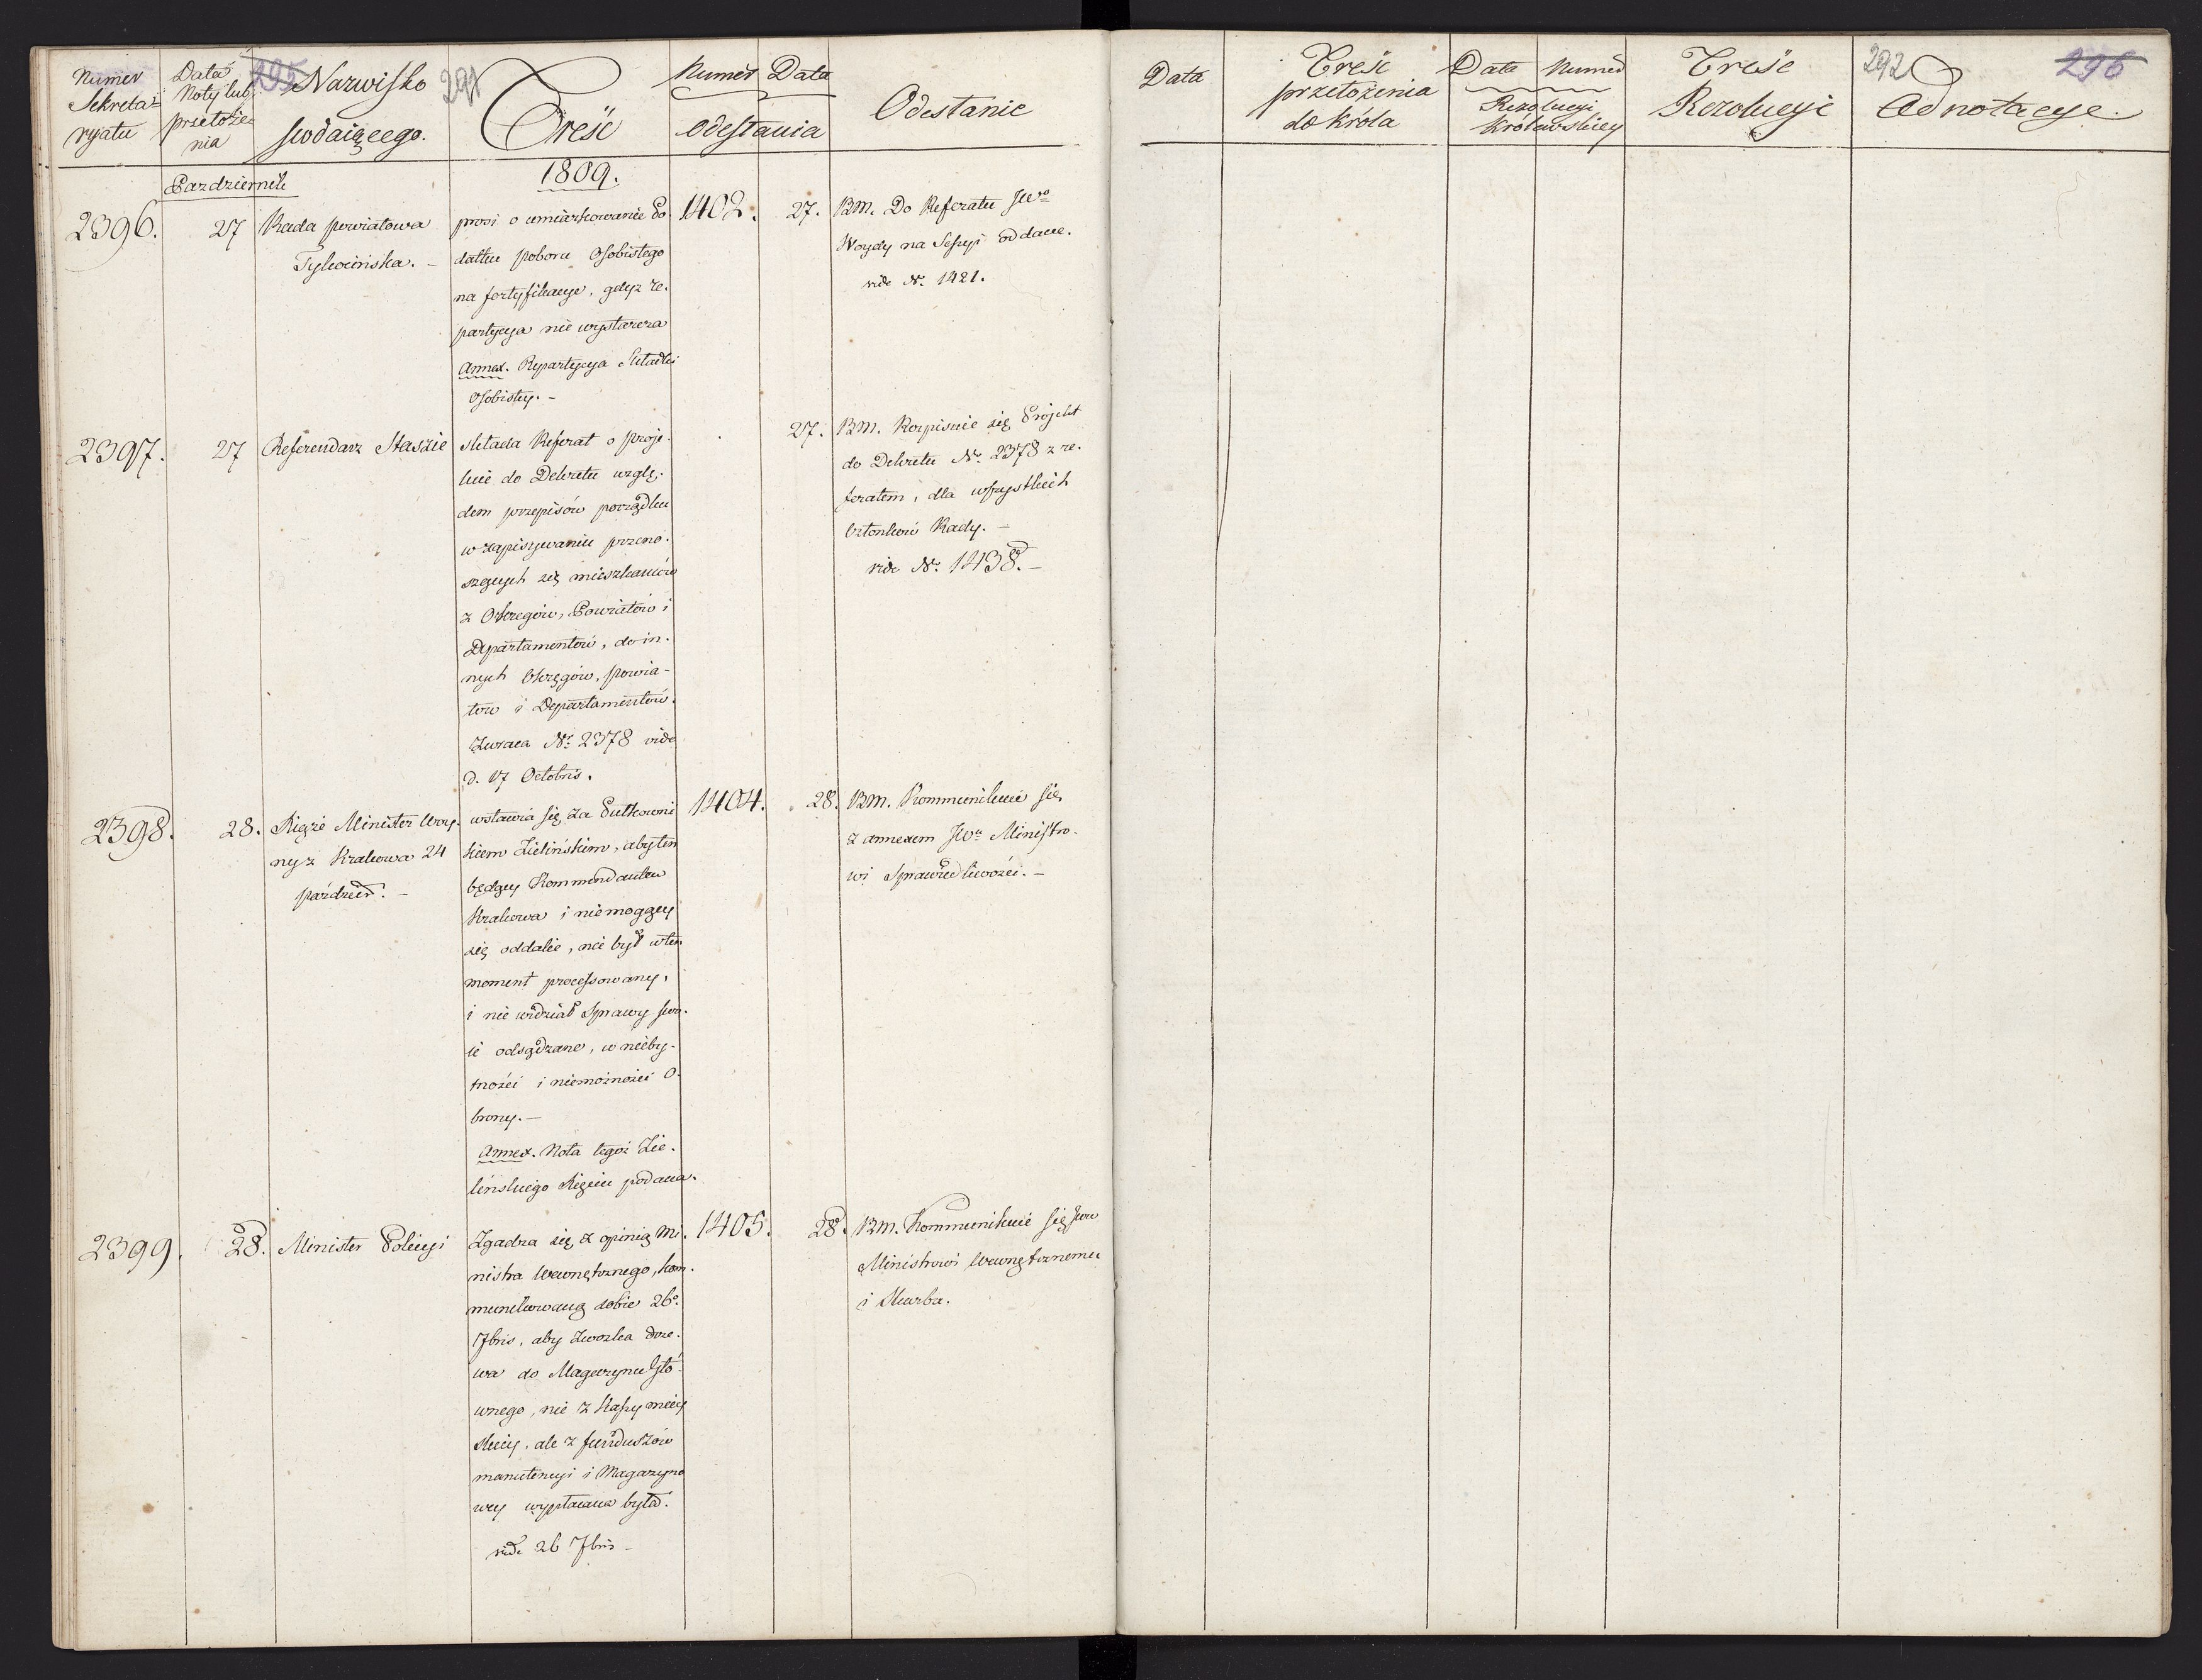 Numer
Sekreta=
ryatu
Data
Noty lub
przełoże=
nia
295
Nazwisko
podaiącego.
291
Treść
Numer Data
odesłania
Odesłanie
Data
Treść
przełożenia
do Króla
Data Numer
Rezolucyi
Królewskiey
Treść
Rezolucyi
292
296
Adnotacye.
Pazdziernik
1809.
2396.
27
Rada powiatowa
Tykocińska. –
prosi o umiarkowanie do
datku poboru Osobistego
na fortyfikacye, gdyz re.
partycya nie wystarcza
Annex. Repartycya Składki
Osobistey. –
1402.
27.
BM. Do Referatu JW.
Woydy na Sessyi oddane.
vide N. 1421.
2397.
27
Referendarz Staszic
składa Referat o proje.
kcie do Dekretu wzglę.
dem przepisów porządku
w zapisywaniu przeno.
szących się mieszkańców
z Okręgów, Powiatów i
Departamentów, do in.
nych Okręgów, powia-
tów i Departamentów.
Zwraca N. 2378 vide
d. 17 Octobris.
27.
BM. Rozpisuie się Projekt
do Dekretu N. 2378 z re.
feratem, dla wszystkich
Członków Rady. –
vide N. 1438. –
2398.
28.
Xiąże Minister Woy.
ny z Krakowa 24
paździer. –
wstawia się za Pułkowni
kiem Zielińskim, aby ten
będący Kommendantem
Krakowa i niemogący
się oddalić, nie był w ten
moment processowany,
i nie widział Sprawy swo.
ie odsądzane, w nieby-
tności i niemożności O-
brony. –
Annex. Nota tegoż Zie.
lińskiego Xięciu podana.
1404.
28.
BM. Kommunikuie się
z annexem JW. Ministro-
wi Sprawiedliwości. –
2399.
28.
Minister Policyi
Zgadza się z opinią Mi.
nistra Wewnętrznego, kom.
munikowaną sobie 26.
7bris, aby zwozka drze.
wa do Magazynu Głó-
wnego, nie z Kassy miey
skiey, ale z funduszów
manutencyi i Magazyno
wey wypłacana była.
vide 26 7bris –
1405.
28.
BM. Kommunikuie się JWW
Ministrowi Wewnętrznemu
i Skarbu.